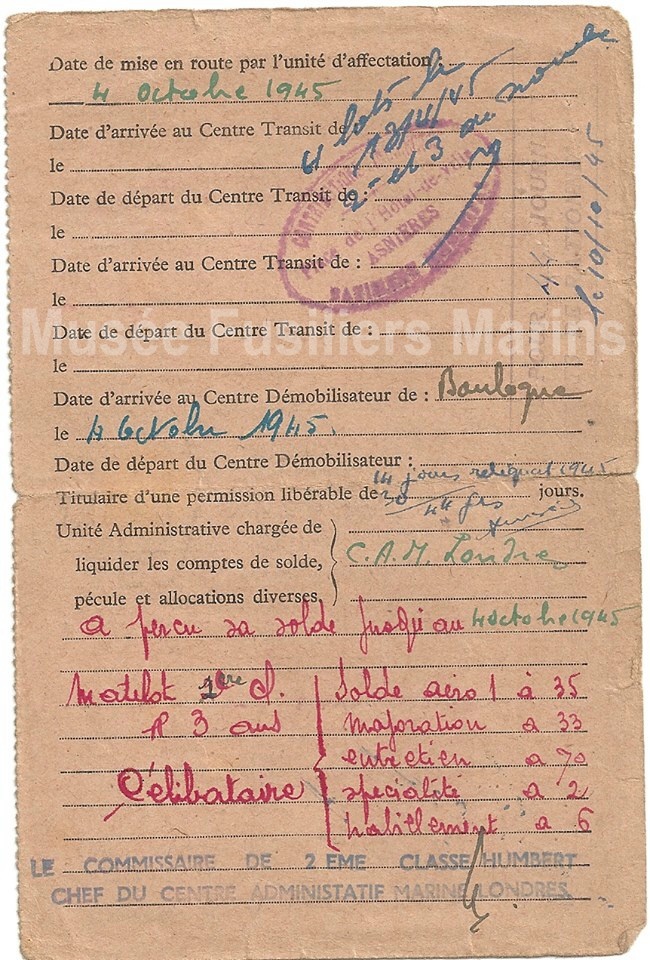 Date de mise en route par l'unité d'affectation :
4 octobre 1945
Date d'arrivée au Centre Transit de
le
Date de départ du Centre Transit de :
le
Date d'arrivée au Centre Transit de :
le
Date de départ du Centre Transit de :
le
Musée Fusiliers Marins
Date d'arrivée au Centre Démobilisateur de : Boulogne
le 4 Octobre 1945.
Date de départ du Centre Démobilisateur :
14 jours reliquat 1945
Titulaire d'une permission libérable de 30 jours.
Unité Administrative chargée de
liquider les comptes de solde,
pécule et allocations diverses,
C.A.M. Londres
a perçu sa solde jusqu'au 4 octobre 1945
Matelot 1ère cl.
R 3 ans
Célibataire
Solde aéro 1 à 35
majoration a 33
entretien a 70
spécialité a 2
habillement a 6
LE COMMISSAIRE DE 2 EME CLASSE HUMBERT
CHEF DU CENTRE ADMINISTATIF MARINE LONDRES.
Place de l'Hôtel-de-Ville
ASNIÈRES
le 10/10/45